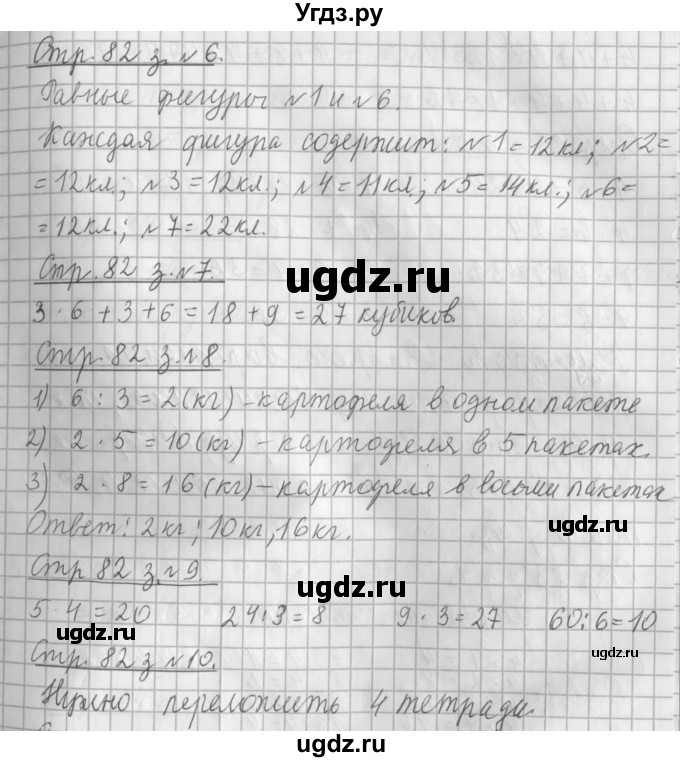 Угдз.ру
Стр. 82 з. №6.
Равные фигуры №1 и №6.
Каждая фигура содержит: №1=12кл; №2=
=12кл.; №3=12кл.; №4=11кл.; №5=14кл.; №6=
=12кл.; №7=22кл.
Стр. 82 з. №7.
ugdz.ru
3 · 6 + 3 + 6 = 18 + 9 = 27 кубиков.
Стр 82 з. №8.
1) 6 : 3 = 2(кг) – картофеля в одном пакете
2) 2 · 5 = 10(кг) – картофеля в 5 пакетах.
3) 2 · 8 = 16(кг) – картофеля в восьми пакетах
Ответ: 2кг; 10кг, 16кг.
ugdz.ru
Стр 82 з. №9.
ugdz.ru
5 · 4 = 20 24:3=8 9 · 3 = 27 60:6=10
ugdz.ru
ugdz.ru
Стр. 82 з №10.
Нужно переложить 4 тетради.
ugdz.ru